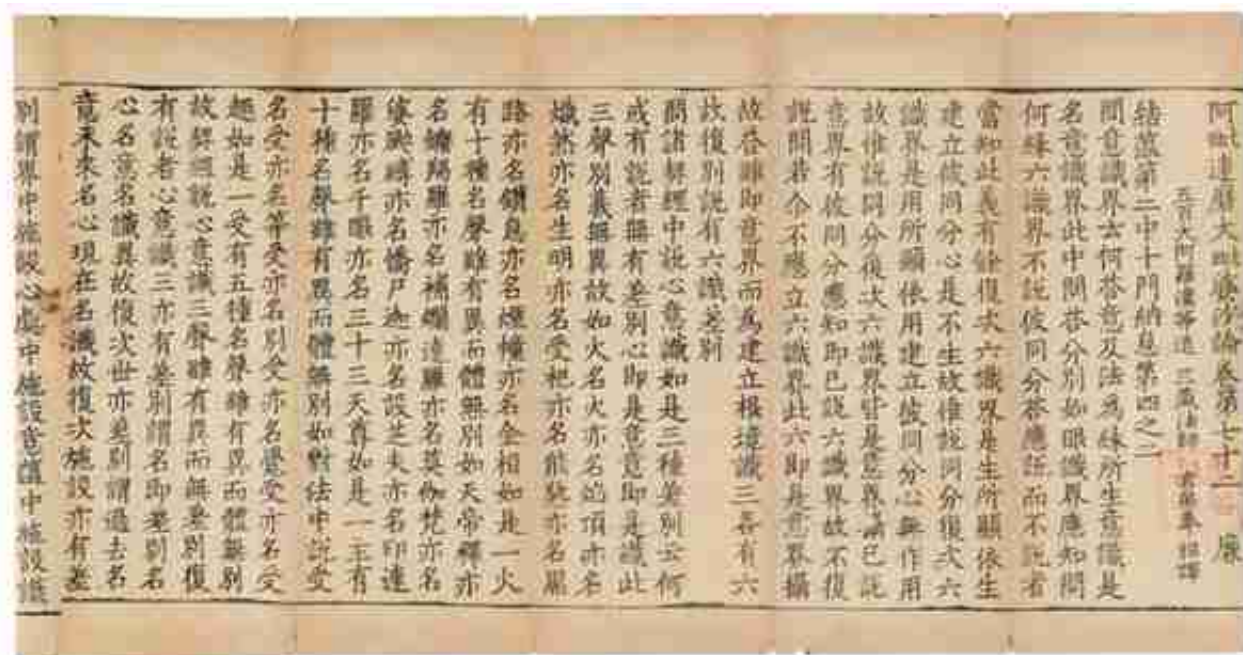 阿毗達磨大毗婆沙論卷第七十二 廉
五百大阿羅漢等造 三藏法師 玄奘奉 詔譯
結蘊第二中十門納息第四之二
問意識界云何答意及法為緣所生意識是
名意識界此中問答分別如眼識界應知問
何緣六識界不說彼同分答應說而不說者
當知此義有餘復次六識界是生所顯依生
建立彼同分心是不生故惟說同分復次六
識界是用所顯依用建立彼同分心無作用
故惟說同分復次六識界皆是意界攝已說
意界有彼同分應知即已說六識界故不復
說問若尒不應立六識界此六即是意界攝
故答雖即意界而為建立根境識三各有六
故復別說有六識差別
問諸契經中說心意識如是三種差別云何
或有說者無有差別心即是意意即是識此
三聲別義無異故如火名火亦名焰頂亦名
熾然亦名生明亦名受祀亦名能熟亦名黑
路亦名鑽息亦名煙幢亦名金相如是一火
有十種名聲雖有異而體無別如天帝釋亦
名鑠羯羅亦名補爛達羅亦名莫伽梵亦名
婆颯縛亦名憍尸迦亦名設芝夫亦名印達
羅亦名千眼亦名三十三天尊如是一主有
十種名聲雖有異而體無別如對法中說受
名受亦名等受亦名別受亦名覺受亦名受
趣如是一受有五種名聲雖有異而體無別
故契經說心意識三聲雖有異而無差別復
有說者心意識三亦有差別謂名即差別名
心名意名識異故復次世亦差別謂過去名
意未來名心現在名識故復次施設亦有差
別謂界中施設心處中施設意蘊中施設識